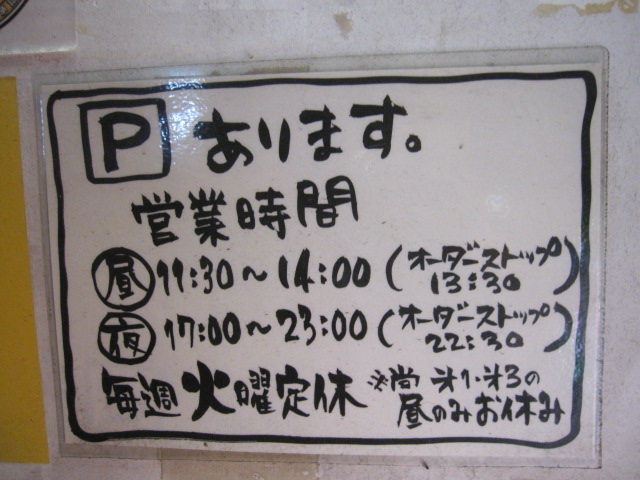 P あります。
営業時間
昼 11:30～14:00(オーダーストップ 13:30)
夜 17:00～23:00(オーダーストップ 22:30)
毎週火曜定休 ※尚 オ1・オ3の
昼のみお休み